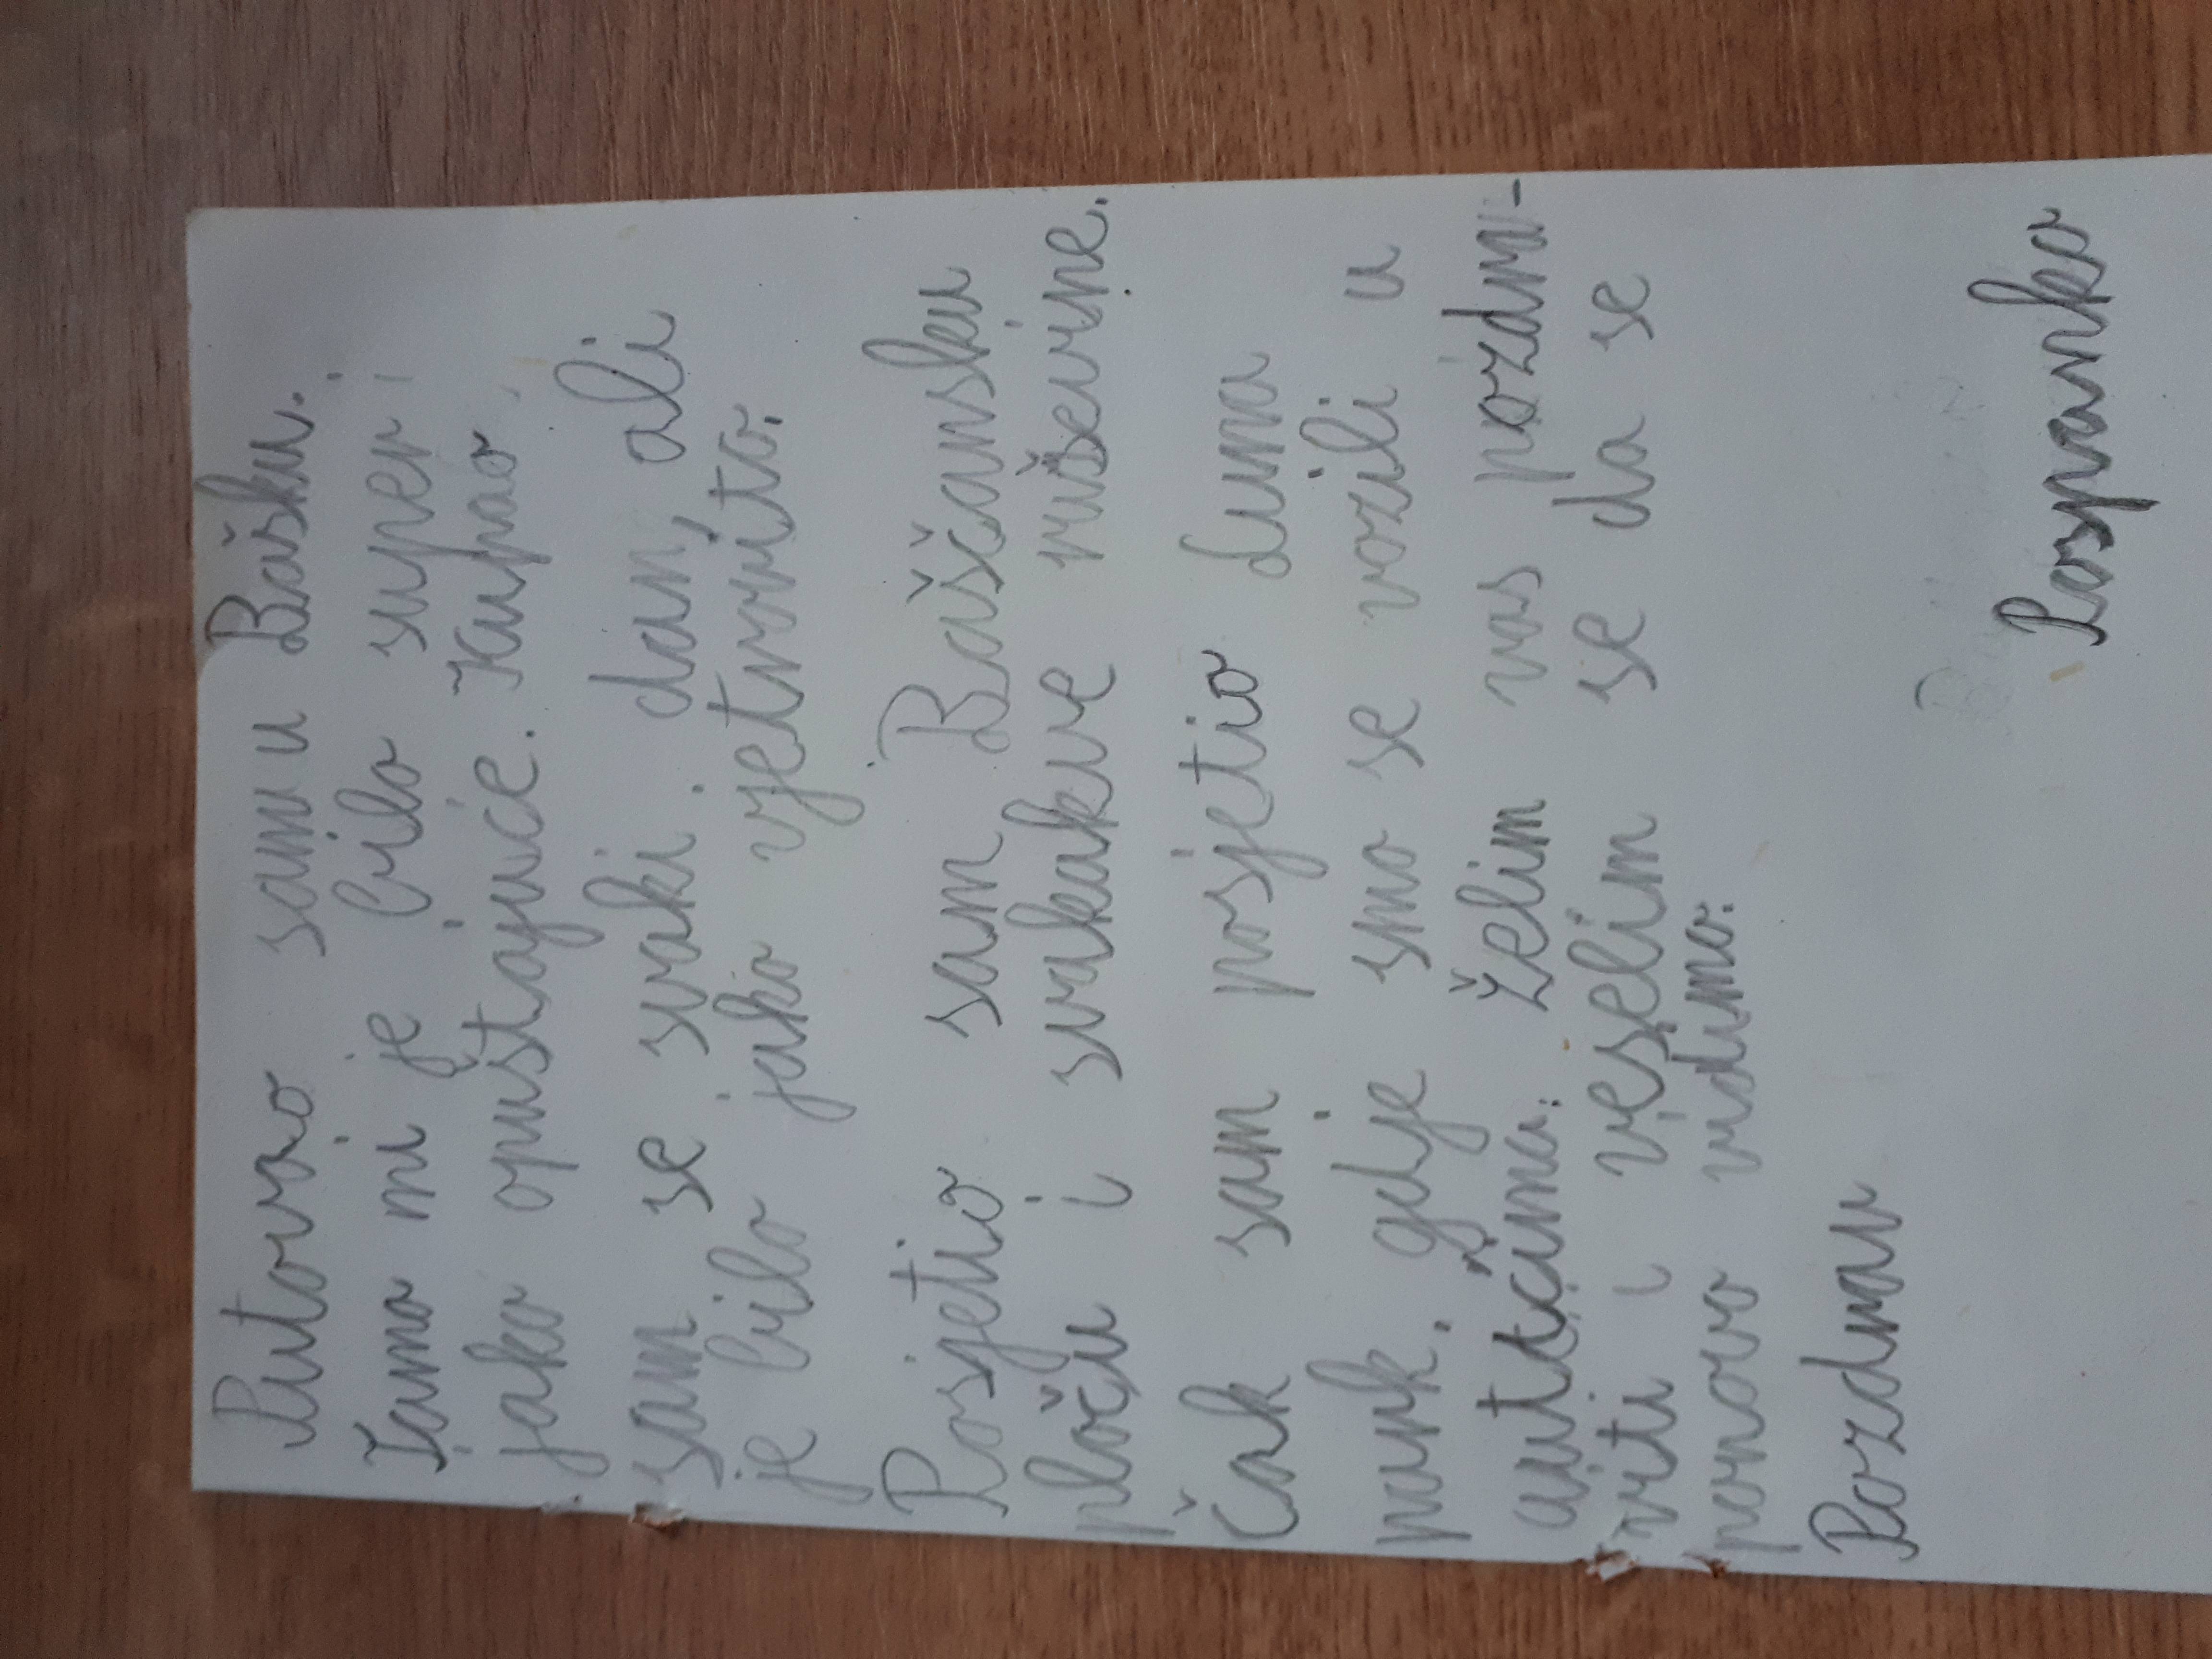 Putovao sam u Bašku.
Tamo mi je bilo super i
jako opustajuće. Kupao
sam se svaki dan, ali
je bilo jako vjetrovito.
Posjetio sam Baščansku
ploču i svakakve ruševine.
Čak sam posjetio Luna
park gdje smo se vozili u
autićima. Želim vas pozdra-
viti i veselim se da se
ponovo vidimo.
Pozdrav
Pospanko